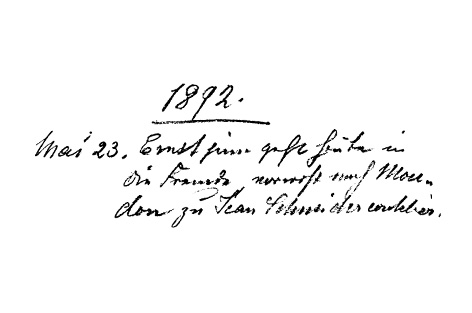 1892.
Mai 23. Ernst jun geht heute in
die Fremde, vorerst nach Mou-
don zu Jean Schneider cordelier.